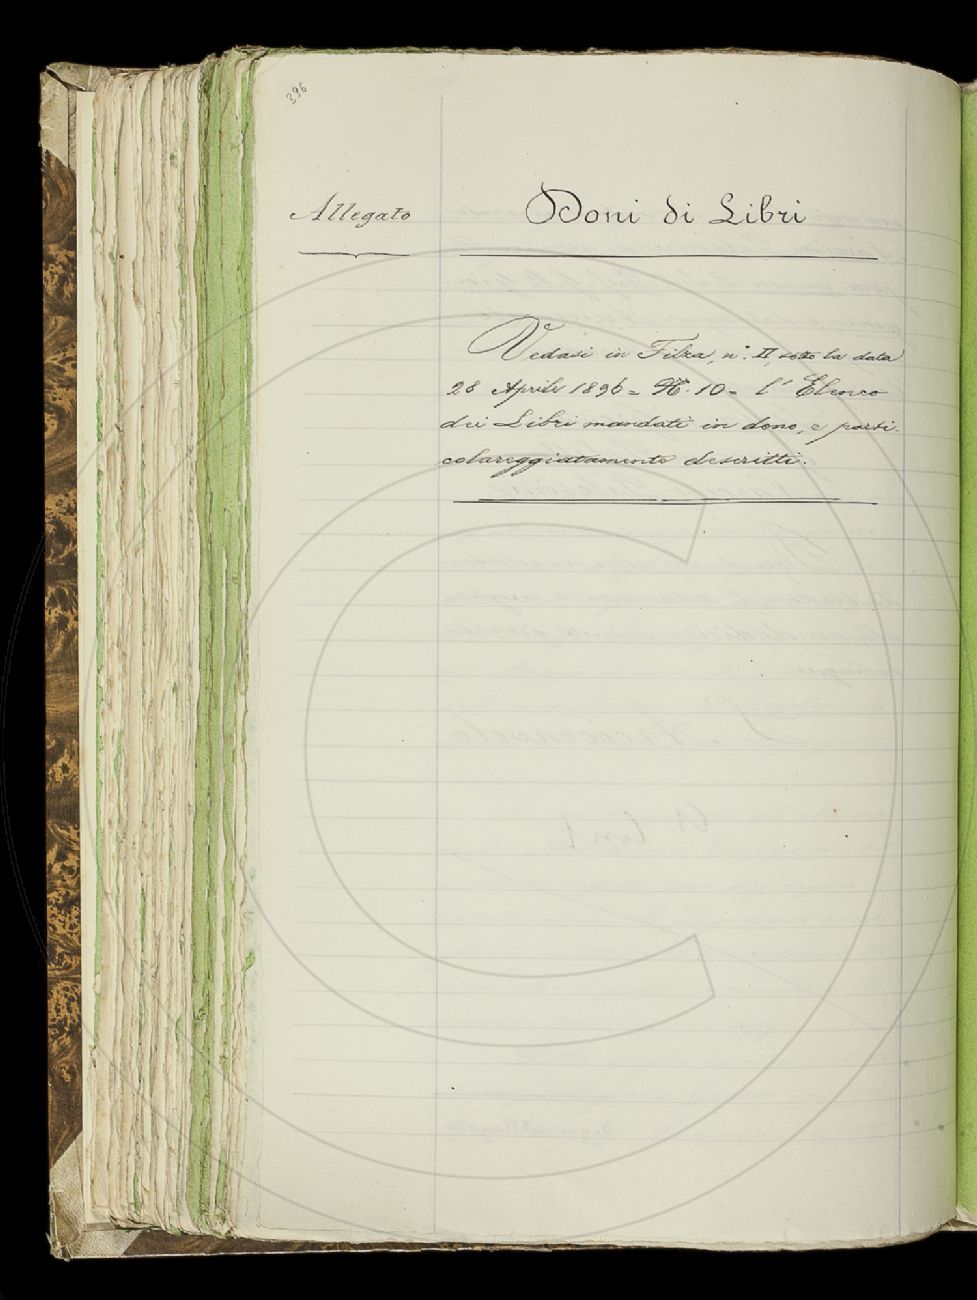 396
Allegato
Doni di Libri
Vedasi in Filza, n.° II, sotto la data
28 Aprile 1896 = N. 10 = l' Elenco
dei Libri mandati in dono, e parti-
colareggiatamente descritti.